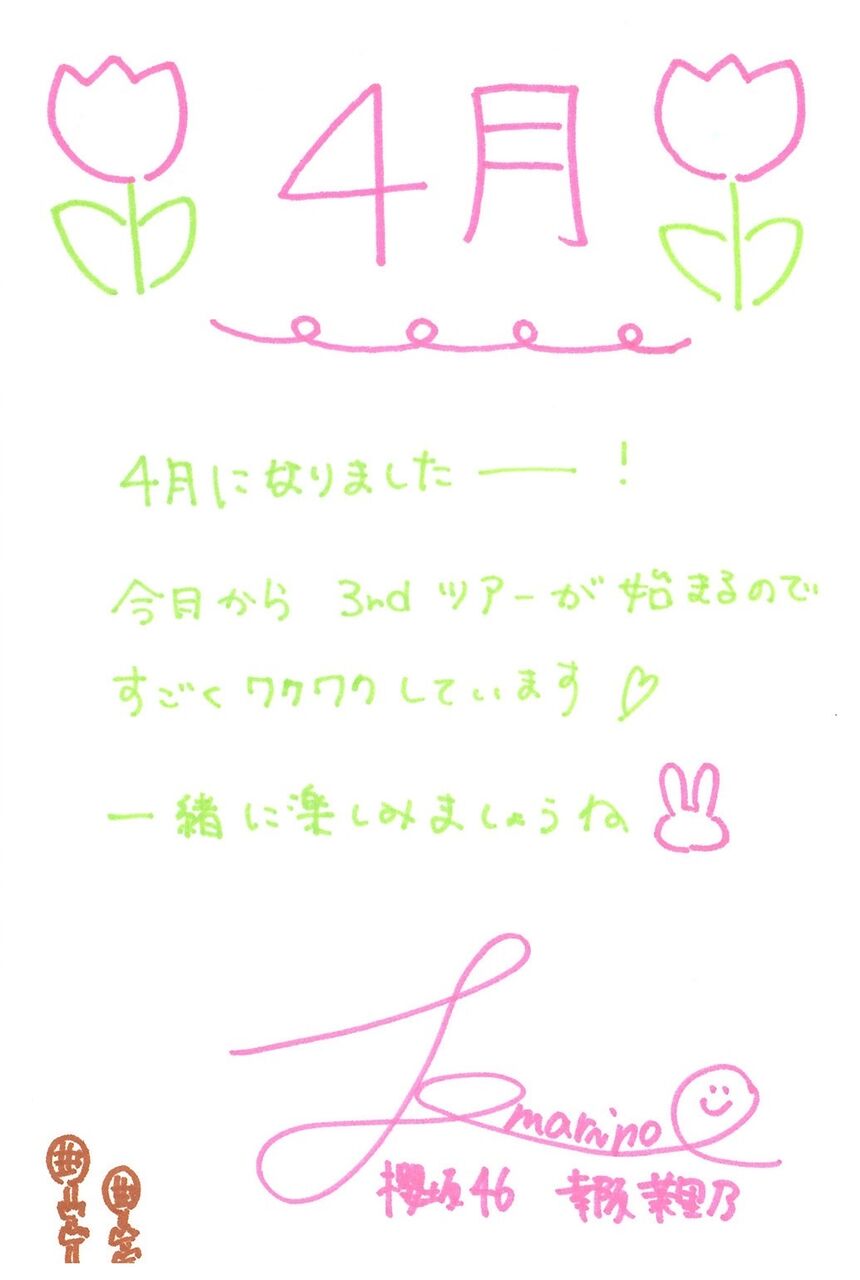 4月
4月になりましたー!
今月から 3nd ツアーが始まるので
すごくワクワクしています♡
一緒に楽しみましょうね
marino
櫻坂46 幸阪茉里乃